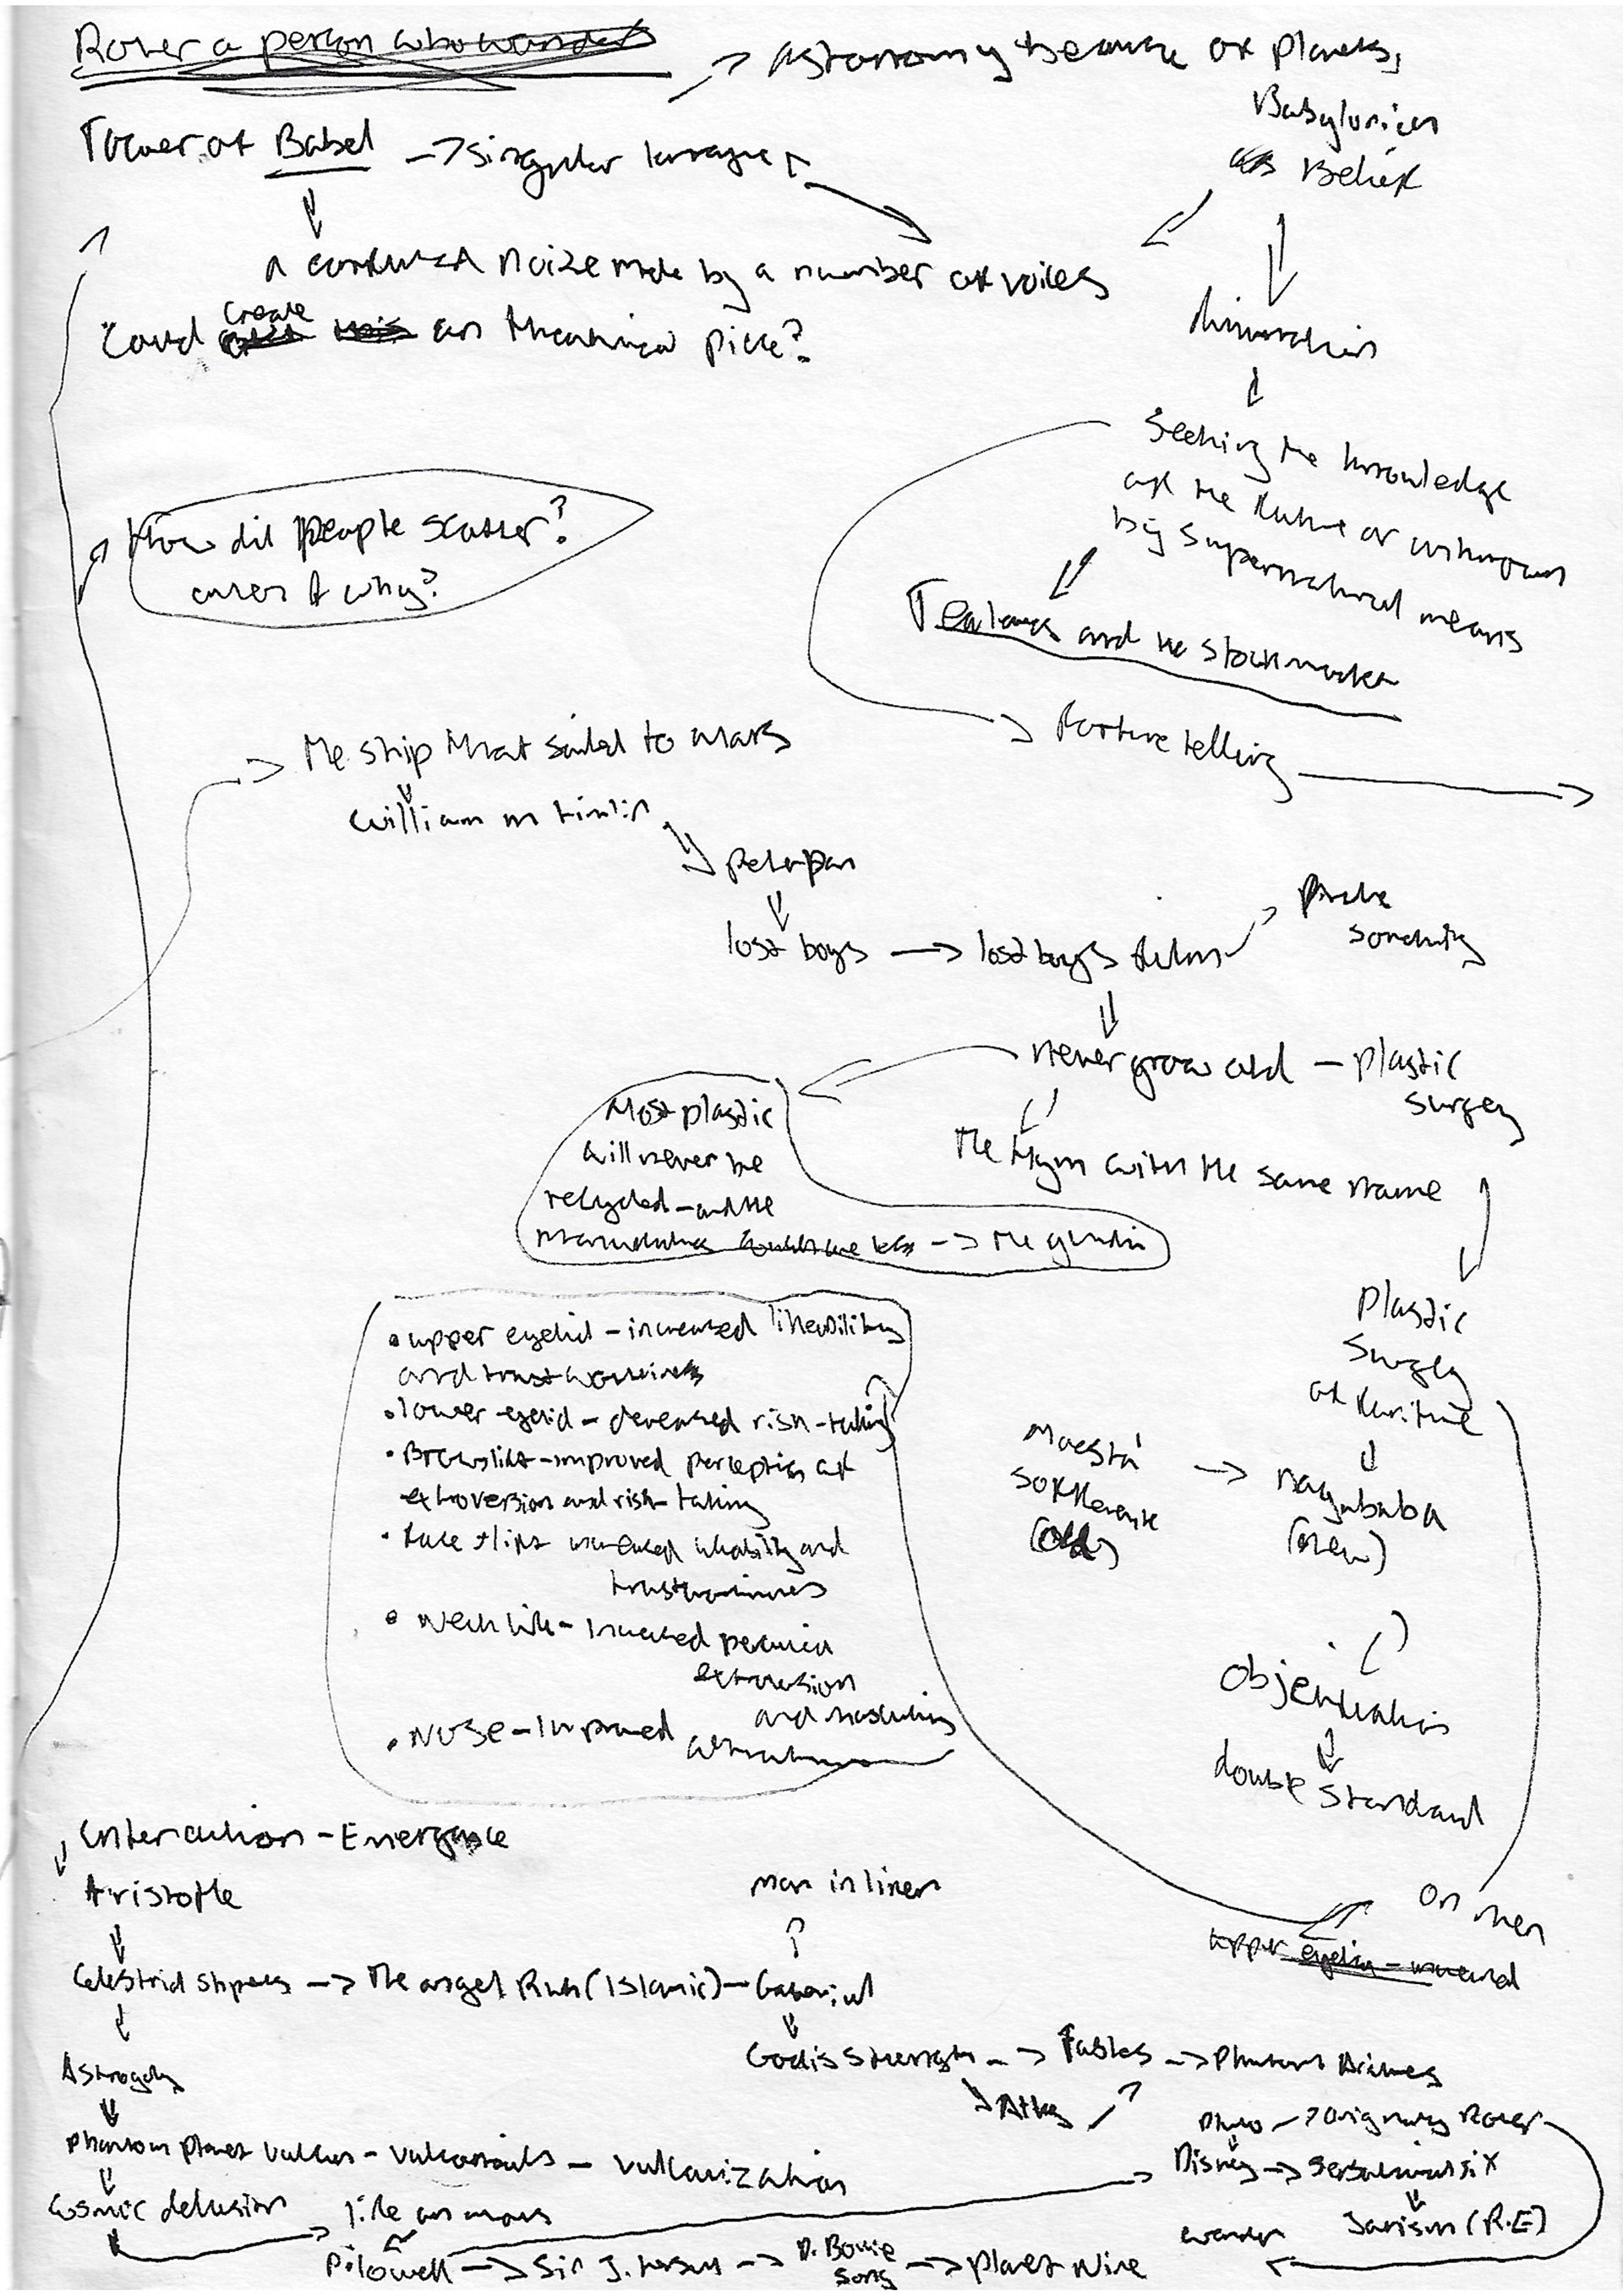 Rover a person who wanders
→ astronomy because of planets,
Tower of Babel → singular language
Babylonian
Belief
a confused noize made by a number of voices
Could create an theatrical piece?
Seeking the knowledge
of the future or unknown
by supernatural means
How did people scatter?
and why?
Tealeaves and the stockmarket
Fortune telling
The ship that sailed to mars
William m timlin
peterpan
lost boys → lost boys film
Pirate
never grow old - plastic
surgery
Most plastic
will never be
recycled - and the
manufacturers → the guardian
The hymn with the same name
Plastic
surgery
• upper eyelid - increased likeability
and trustworthiness
• lower eyelid - decreased risk-taking
• Browlift - improved perception of
extroversion and risk-taking
• Face lift increased likability and
trustworthiness
• Neck lift - Increased perceived
extroversion
and masculinity
• Nose - Improved attractiveness
Maestà
(old)
(new)
Objectification
double standard
On men
upper eyelid - increased
Interaction - Emergence
Aristotle
man in linen
Celestrial sphers → The angel Ruh (Islamic) - Gabriel
God is strength → Fables →
Atlas
Astrogoly
phantom planet vulcan - vulcanoids - vulcanization
Disney →
Cosmic delusion
life on mars
Janism (R.E)
wander
P. lowell → Sir J. → D. Bowie
song → planet nine